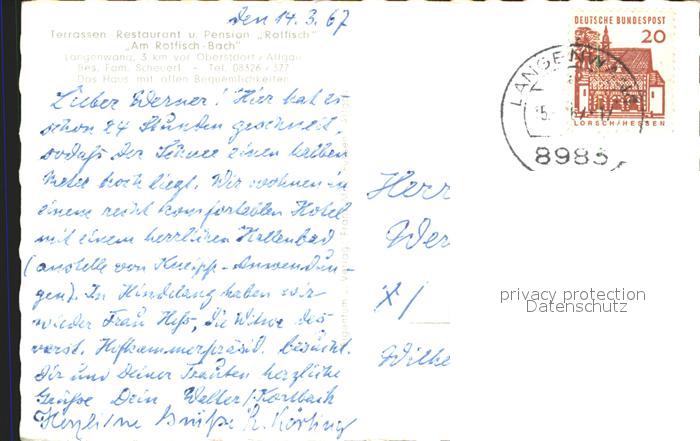 den 14. 3. 67
Terrassen Restaurant u. Pension „Rotfisch"
„Am Rotfisch-Bach"
Langenwang, 3 km vor Oberstdorf / Allgäu
Bes. Fam. Scheuerl - Tel. 08326 / 377
Das Haus mit allen Bequemlichkeiten
Lieber Werner! Hier hat es
schon 24 Stunden geschneit,
sodaß der Schnee einen halben
Meter hoch liegt. Wir wohnen in
einem recht komfortablen Hotel
mit einem herrlichen Hallenbad
(anstelle von Kneipp-Anwendun-
gen). In Hindelang haben wir
wieder Frau Heß, die Witwe des
verst. Hofkammerpräsid. besucht.
Dir und Deiner Trauten herzliche
Grüße Dein Walter /
Herzliche Grüße
DEUTSCHE BUNDESPOST
20
LORSCH/HESSEN
LANGENWANG
8985
Herr
Wer
Wilhe
privacy protection
Datenschutz